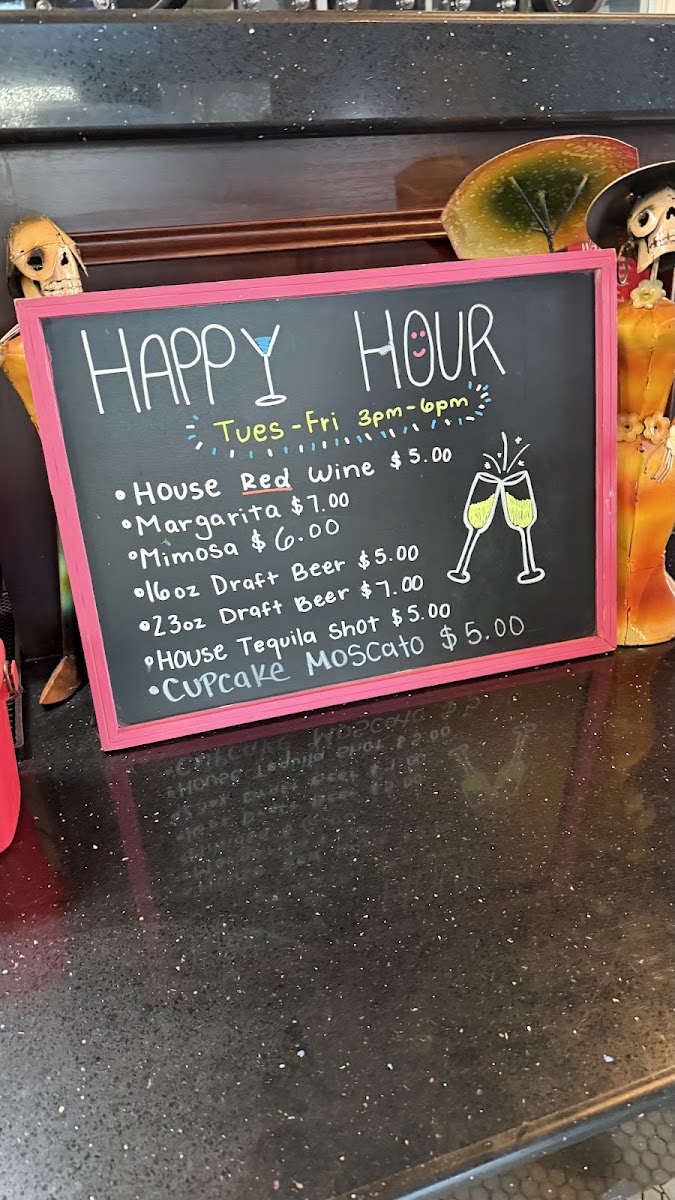 HAPPY HOUR
Tues-Fri 3pm-6pm
•House Red Wine $5.00
•Margarita $7.00
•Mimosa $6.00
•16oz Draft Beer $5.00
•23oz Draft Beer $7.00
•House Tequila Shot $5.00
•Cupcake Moscato $5.00